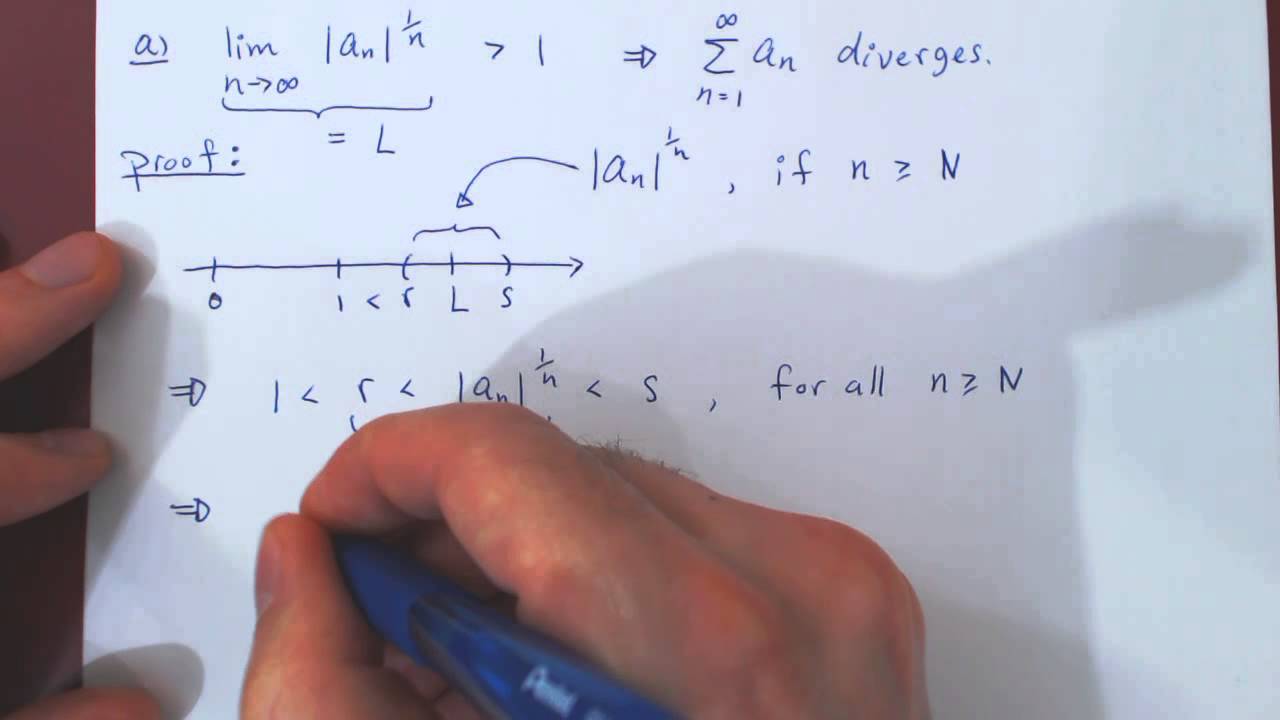 a) lim n→∞ |aₙ|^(1/n) > 1 ⇒ ∑ n=1 ∞ aₙ diverges.
= L
Proof:
|aₙ|^(1/n) , if n ≥ N
0 1 < r L s
⇒ 1 < r < |aₙ|^(1/n) < s , for all n ≥ N
⇒
Pentel